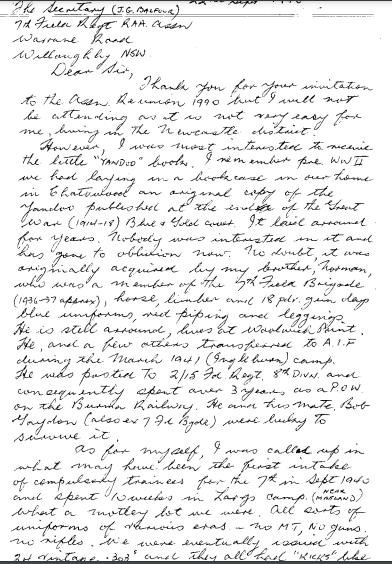 The Secretary (J.G. BALFOUR)
7th Field Regt RAA Assn
Warrane Road
Willoughby NSW.
Dear Sir,
Thank you for your invitation
to the Assn Reunion 1990 but I will not
be attending as it is not very easy for
me, living in the Newcastle district.
However, I was most interested to receive
the little "YANDOO" book. I remember pre WW II
we had laying in a bookcase in our home
in Chatswood an original copy of the
Yandoo published at the end of the Great
War (1914-18) Blue & Gold cover. It laid arround
for years. Nobody was interested in it and
has gone to oblivion now. No doubt, it was
originally acquired by my brother, Norman,
who was a member of the 7th Field Brigade
(1936-37 approx), horse, limber and 18 pdr. gun days
blue uniforms, red piping and leggings.
He is still arround, lives at Woolwich Point.
He, and a few others transferred to A.I.F
during the March 1941 (Ingleburn) camp.
He was posted to 2/15 Fd Regt, 8th DIVN. and
consequently spent over 3 years as a POW
on the Burma Railway. He and his mate, Bob
Gaydon (also ex 7 Fd Bgde) were lucky to
survive it.
As for myself, I was called up in
what may have been the first intake
of compulsory trainees for the 7th in Sept 1940
and spent 10 weeks in Largs camp. (NEAR MAITLAND)
What a motley lot we were. All sorts of
uniforms of various eras - no MT, No guns
no rifles. We were eventually issued with
vintage .303's and they all had "KICKS" like